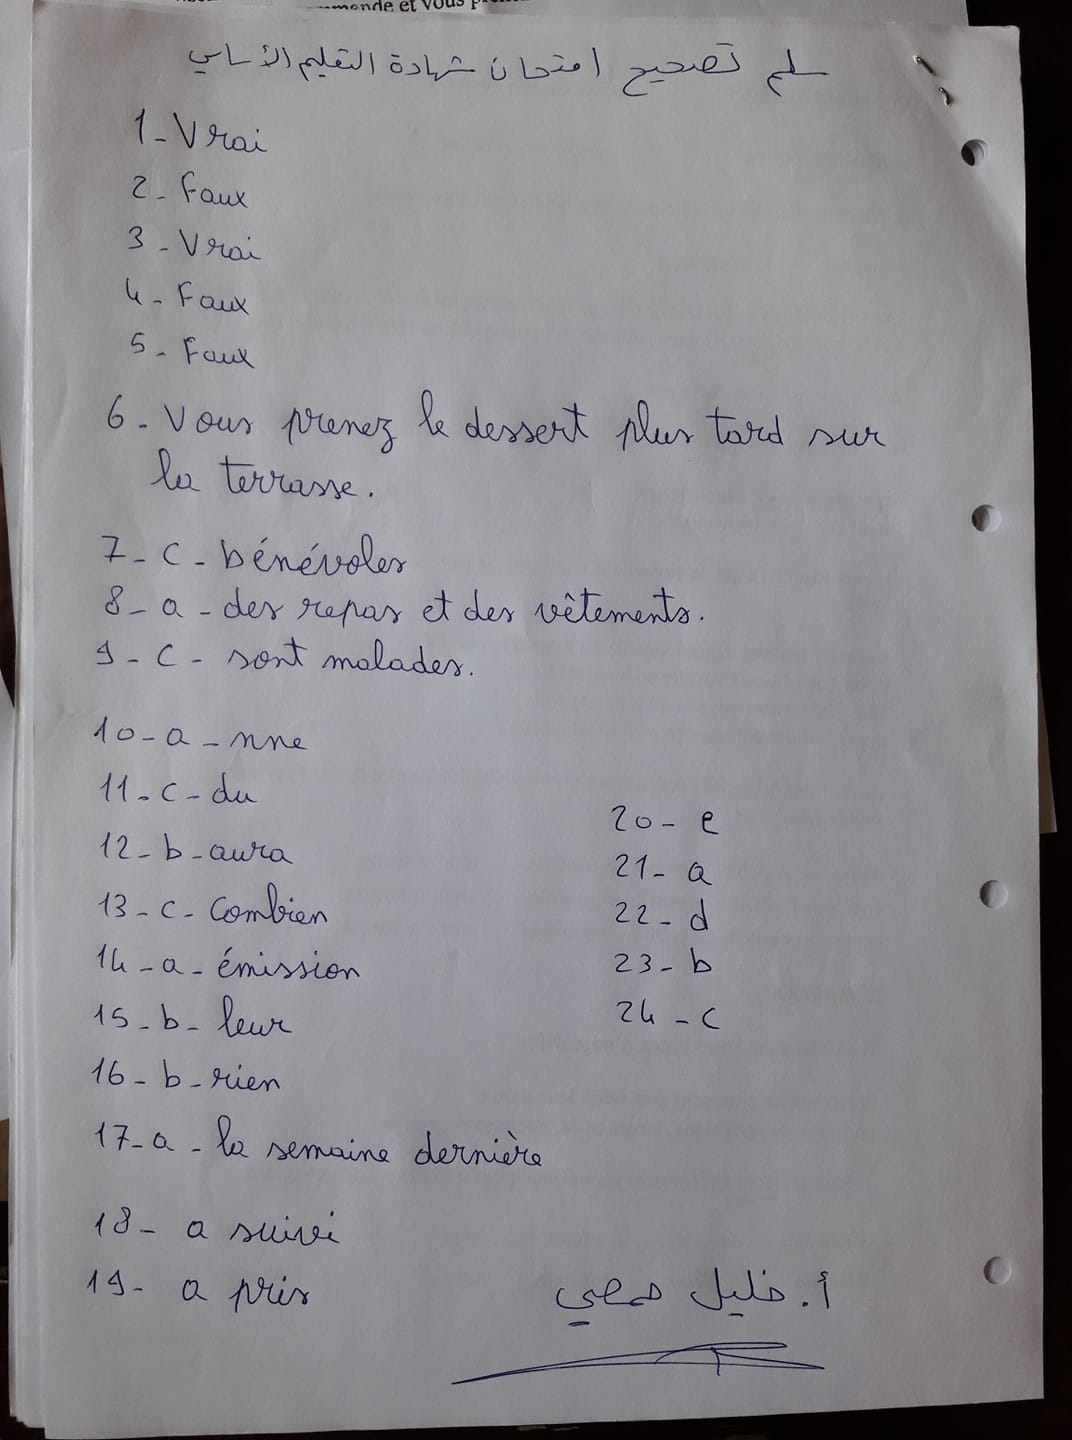 mmande et vous
سلم تصحيح امتحان شهادة التعليم الأساسي
1- Vrai
2- Faux
3- Vrai
4- Faux
5- Faux
6- Vous prenez le dessert plus tard sur
la terrasse.
7- c- bénévoles
8- a- des repas et des vêtements.
9- c- sont malades.
10- a- nne
11- c- du
12- b- aura
13- c- Combien
14- a- émission
15- b- leur
16- b- rien
17- a- la semaine dernière
18- a suivi
19- a pris
20- e
21- a
22- d
23- b
24- c
أ. خليل حمصي